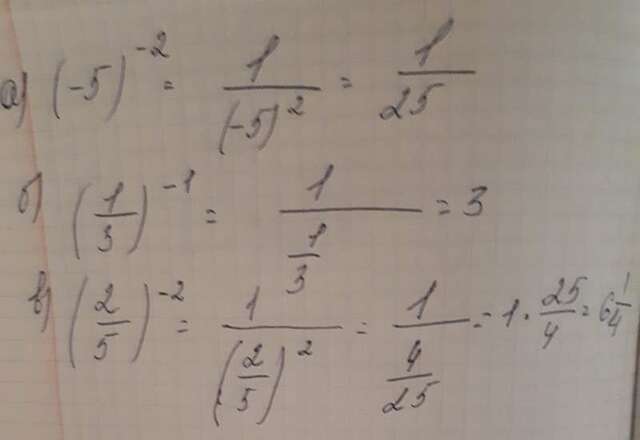 а) (-5)^-2 = 1/(-5)^2 = 1/25
б) (1/3)^-1 = 1/(1/3) = 3
в) (2/5)^-2 = 1/(2/5)^2 = 1/(4/25) = 1 · 25/4 = 6 1/4